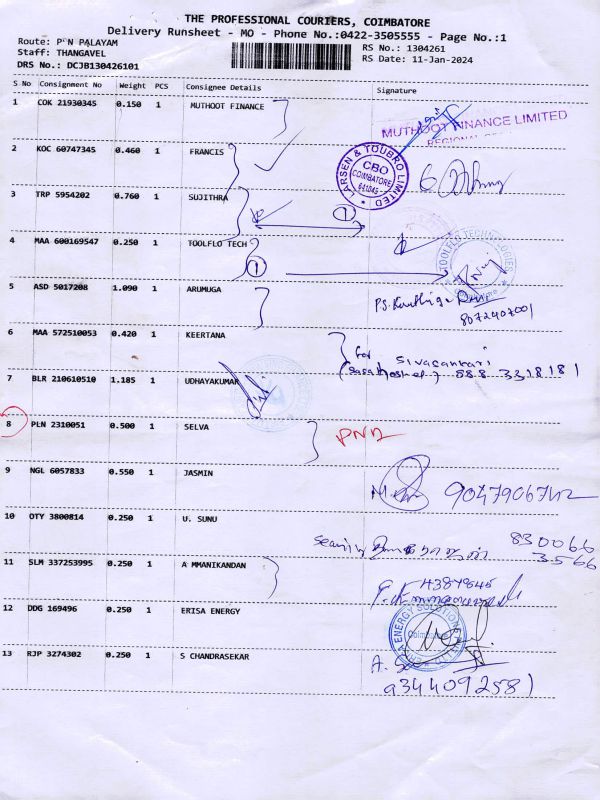 THE PROFESSIONAL COURIERS, COIMBATORE
Delivery Runsheet - MO - Phone No.:0422-3505555 - Page No.:1
Route: P N PALAYAM
RS No.: 1304261
Staff: THANGAVEL
RS Date: 11-Jan-2024
DRS No.: DCJB130426101
S No Consignment No Weight PCS Consignee Details Signature
1 COK 21930345 0.150 1 MUTHOOT FINANCE
MUTHOOT FINANCE LIMITED
2 KOC 60747345 0.460 1 FRANCIS
LARSEN & TOUBRO LIMITED
CBO
COIMBATORE
641045
3 TRP 5954202 0.760 1 SUJITHRA
1
4 MAA 600169547 0.250 1 TOOLFLO TECH
TOOLFLO TECHNOLOGIES
1
5 ASD 5017208 1.090 1 ARUMUGA
8072407001
6 MAA 572510053 0.420 1 KEERTANA
for Sivasankari
7 BLR 210610510 1.185 1 UDHAYAKUMAR
8 PLN 2310051 0.500 1 SELVA
9 NGL 6057833 0.550 1 JASMIN
10 OTY 3800814 0.250 1 U. SUNU
830066
3566
11 SLM 337253995 0.250 1 A MMANIKANDAN
12 DDG 169496 0.250 1 ERISA ENERGY
Coimbatore
13 RJP 3274302 0.250 1 S CHANDRASEKAR
9344092581